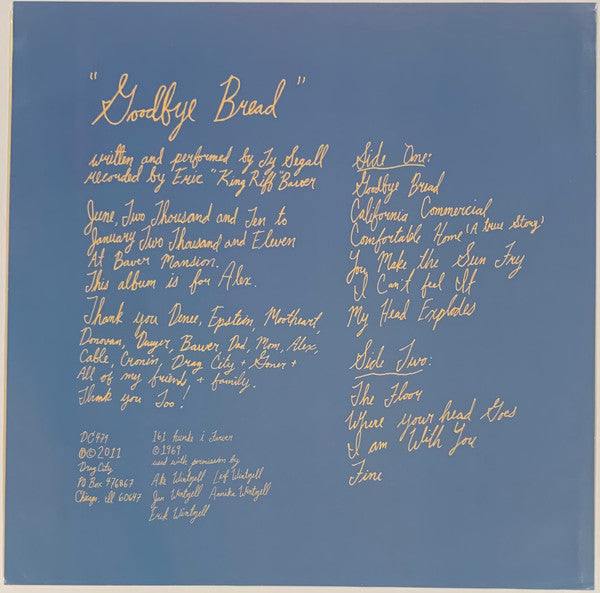 "Goodbye Bread"
written and performed by Ty Segall
recorded by Eric "King Riff" Bauer
June, Two Thousand and Ten to
January Two Thousand and Eleven
At Bauer Mansion.
This album is for Alex.
Thank you Denee, Epstein, Mootheart,
Donovan, Dwyer, Bauer, Dad, Mom, Alex,
Cable, Cronin, Drag City + Goner +
All of my friends + family.
Thank you Too!
DC479
℗© 2011
Drag City
PO Box 476867
Chicago, ill 60647
161 kvinde i Turver
©1969
used with permission by
Ake Wintzell Leif Wintzell
Jan Wintzell Annika Wintzell
Erik Wintzell
Side One:
Goodbye Bread
California Commercial
Comfortable Home (A true Story)
You Make the Sun Fry
I Can't feel It
My Head Explodes
Side Two:
The Floor
Where your head Goes
I am With You
Fine